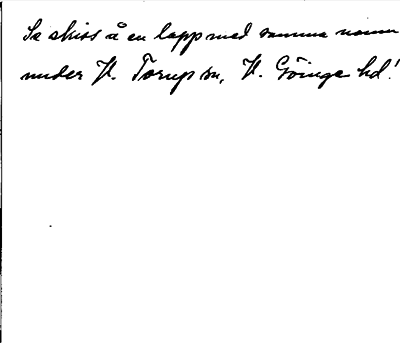 Se skiss å en lapp med samma namn
under N. Torup sn, V. Göinge hd!